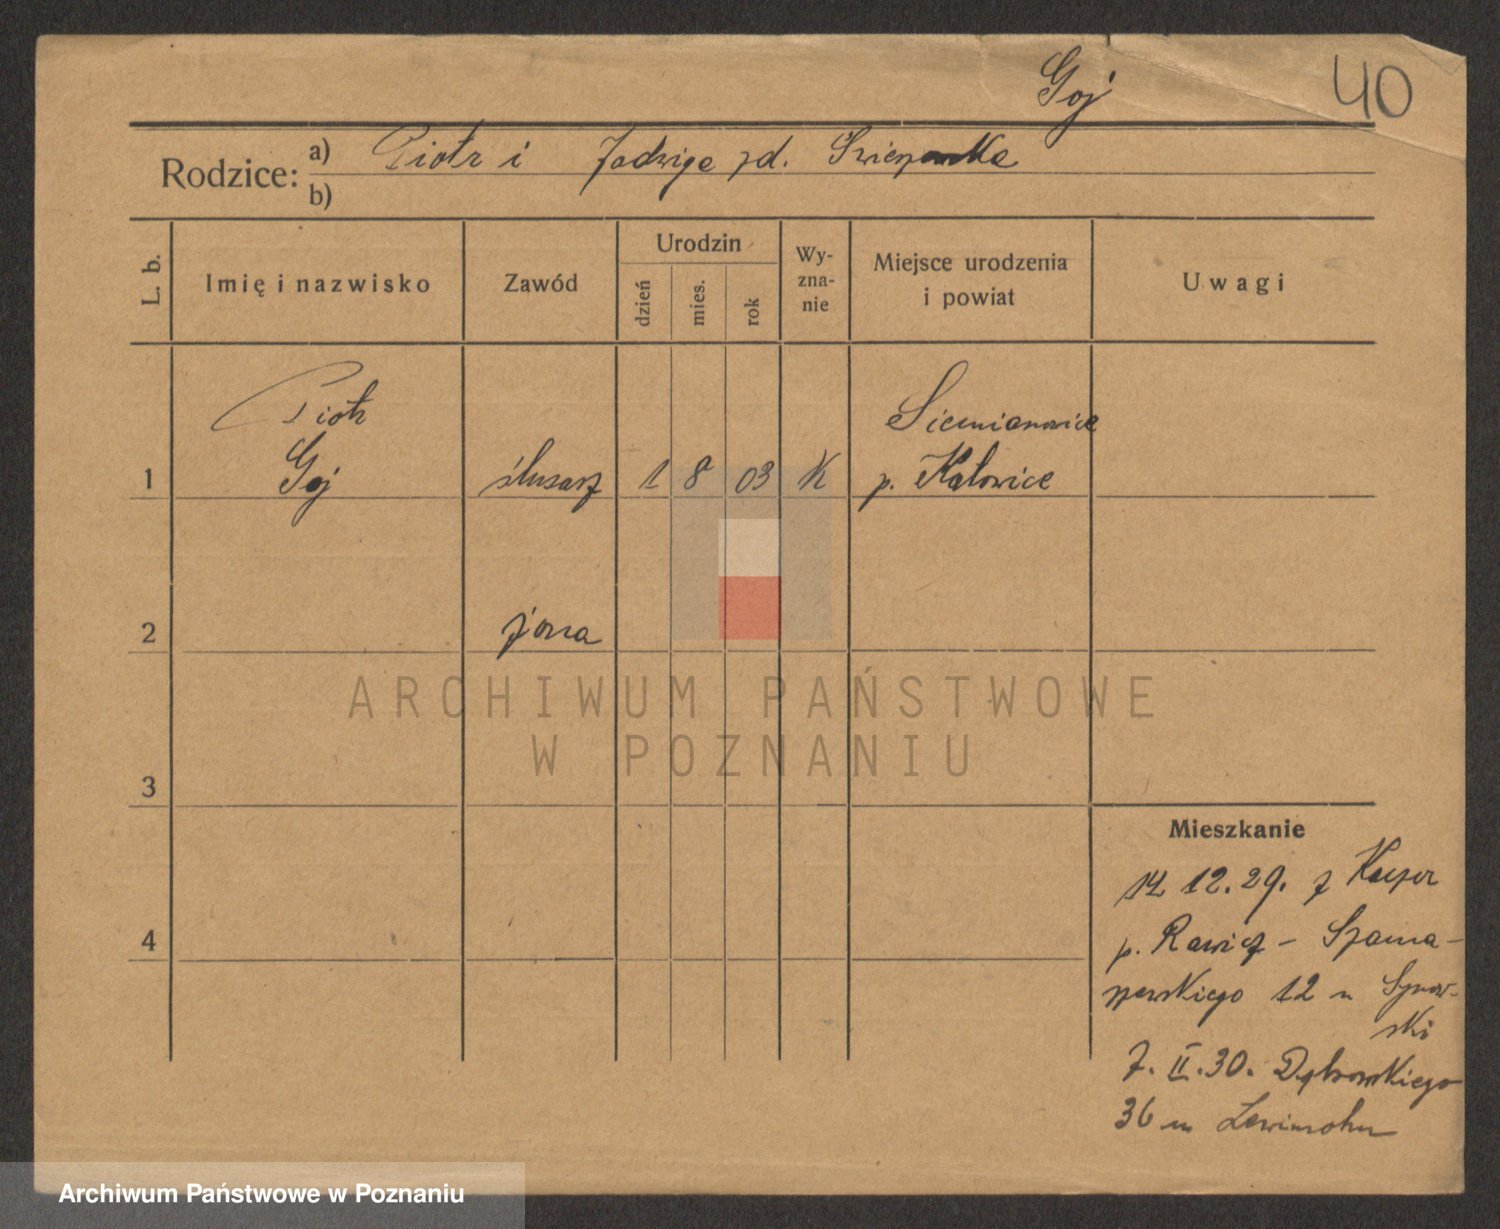 Goj 40
Rodzice: a) Piotr i Jadwiga zd.
b)
L. b. Imię i nazwisko Zawód Urodzin dzień mies. rok Wy-zna-nie Miejsce urodzenia i powiat Uwagi
Piotr Siemianowice
1 Goj ślusarz 1 8 03 K p. Katowice
2 żona
ARCHIWUM PAŃSTWOWE
W POZNANIU
3
Mieszkanie
12.29. z
4
p. Rawicz - Szama-
rzewskiego 12 u
ski
7. II. 30. Dąbrowskiego
36 u
Archiwum Państwowe w Poznaniu